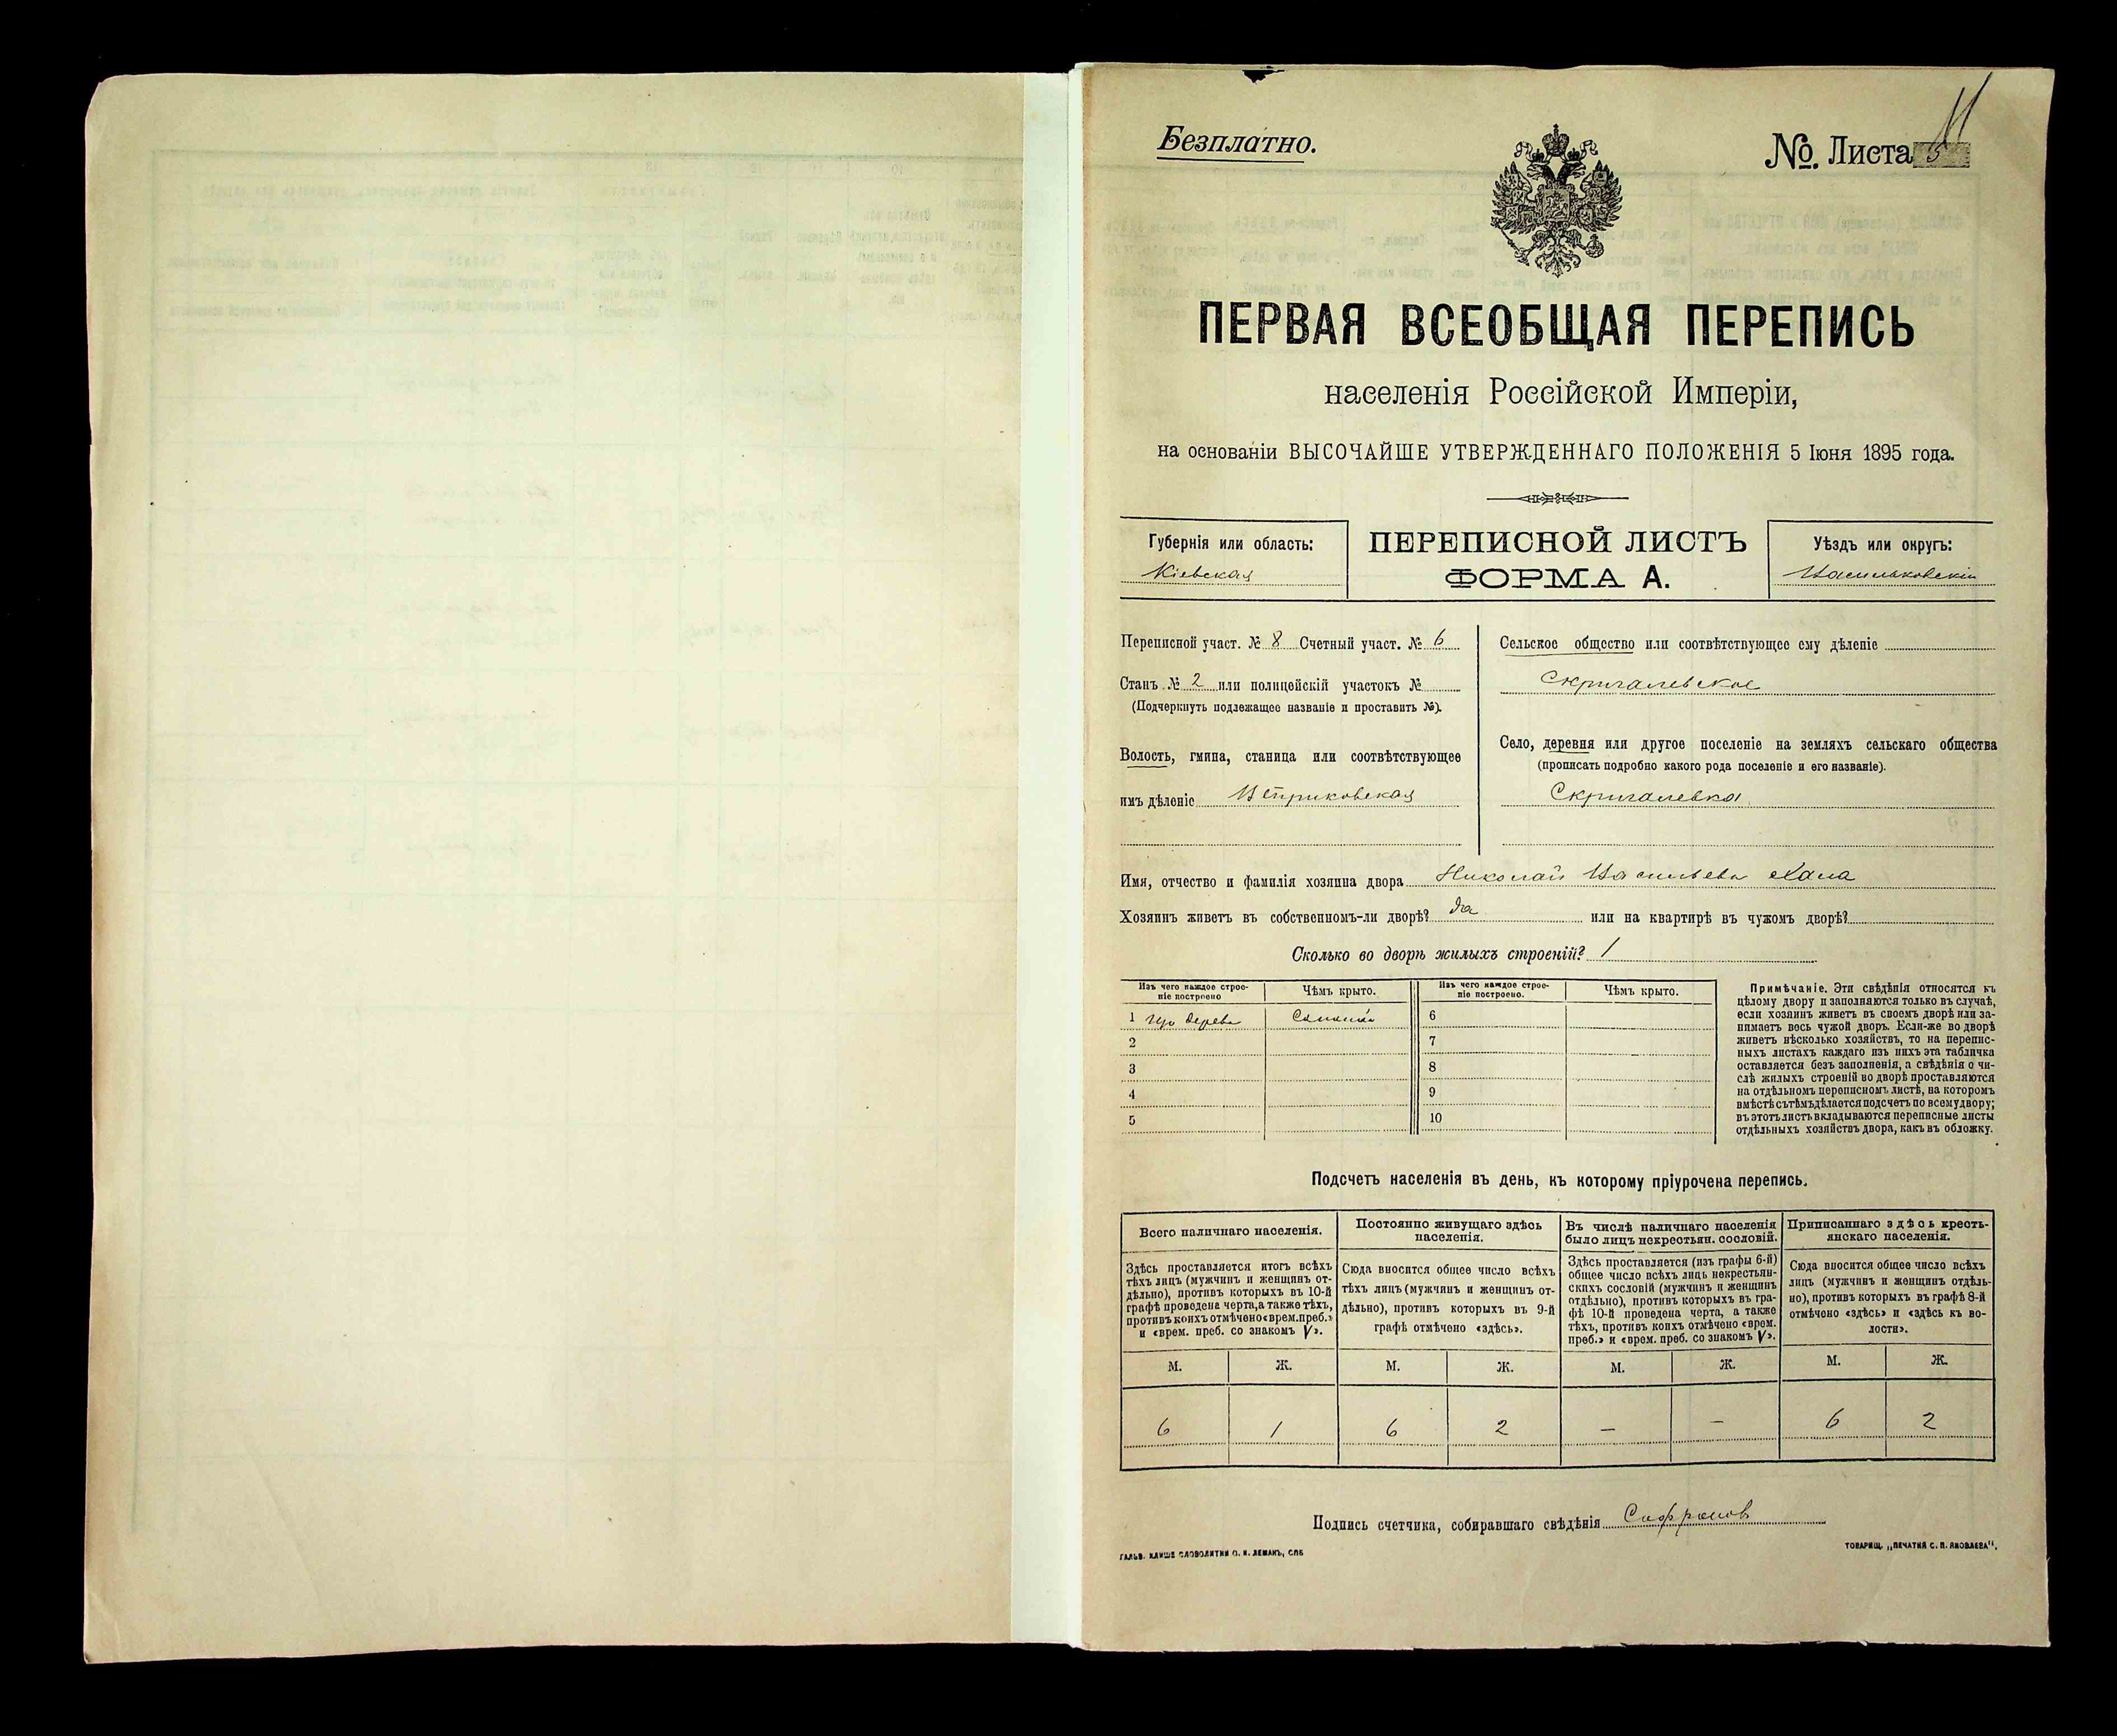 Безплатно.
№ Листа 5
11
ПЕРВАЯ ВСЕОБЩАЯ ПЕРЕПИСЬ
населенія Россійской Имперіи,
на основаніи ВЫСОЧАЙШЕ УТВЕРЖДЕННАГО ПОЛОЖЕНІЯ 5 Іюня 1895 года.
Губернія или область:
Кіевская
ПЕРЕПИСНОЙ ЛИСТЪ
ФОРМА А.
Уѣздъ или округъ:
Васильковскій
Переписной участ. № 8 Счетный участ. № 6
Станъ № 2 или полицейскій участокъ №
(Подчеркнуть подлежащее названіе и проставить №).
Волость, гмина, станица или соотвѣтствующее
имъ дѣленіе Веприковская
Сельское общество или соотвѣтствующее ему дѣленіе
Скригалевское
Село, деревня или другое поселеніе на земляхъ сельскаго общества
(прописать подробно какого рода поселеніе и его названіе).
Скригалевка
Имя, отчество и фамилія хозяина двора Николай Васильевъ
Хозяинъ живетъ въ собственномъ-ли дворѣ? да или на квартирѣ въ чужомъ дворѣ?
Сколько во дворѣ жилыхъ строеній? 1
Изъ чего каждое строе-
ніе построено
Чѣмъ крыто.
Изъ чего каждое строе-
ніе построено.
Чѣмъ крыто.
1 Изъ дерева Соломой 6
2 7
3 8
4 9
5 10
Примѣчаніе. Эти свѣдѣнія относятся къ
цѣлому двору и заполняются только въ случаѣ,
если хозяинъ живетъ въ своемъ дворѣ или за-
нимаетъ весь чужой дворъ. Если-же во дворѣ
живетъ нѣсколько хозяйствъ, то на перепис-
ныхъ листахъ каждаго изъ нихъ эта табличка
оставляется безъ заполненія, а свѣдѣнія о чи-
слѣ жилыхъ строеній во дворѣ проставляются
на отдѣльномъ переписномъ листѣ, на которомъ
вмѣстѣ съ тѣмъ дѣлается подсчетъ по всему двору;
въ этотъ листъ вкладываются переписные листы
отдѣльныхъ хозяйствъ двора, какъ въ обложку.
Подсчетъ населенія въ день, къ которому пріурочена перепись.
Всего наличнаго населенія.
Здѣсь проставляется итогъ всѣхъ
тѣхъ лицъ (мужчинъ и женщинъ от-
дѣльно), противъ которыхъ въ 10-й
графѣ проведена черта, а также тѣхъ,
противъ коихъ отмѣчено «врем. преб.»
и «врем. преб. со знакомъ V».
Постоянно живущаго здѣсь
населенія.
Сюда вносится общее число всѣхъ
тѣхъ лицъ (мужчинъ и женщинъ от-
дѣльно), противъ которыхъ въ 9-й
графѣ отмѣчено «здѣсь».
Въ числѣ наличнаго населенія
было лицъ некрестьян. сословій.
Здѣсь проставляется (изъ графы 6-й)
общее число всѣхъ лицъ некрестьян-
скихъ сословій (мужчинъ и женщинъ
отдѣльно), противъ которыхъ въ гра-
фѣ 10-й проведена черта, а также
тѣхъ, противъ коихъ отмѣчено «врем.
преб.» и «врем. преб. со знакомъ V».
Приписаннаго здѣсь кресть-
янскаго населенія.
Сюда вносится общее число всѣхъ
лицъ (мужчинъ и женщинъ отдѣль-
но), противъ которыхъ въ графѣ 8-й
отмѣчено «здѣсь» и «здѣсь къ во-
лости».
М. Ж. М. Ж. М. Ж. М. Ж.
6 1 6 2 — — 6 2
Подпись счетчика, собиравшаго свѣдѣнія Сафронов
ГАЛЬВ. КЛИШЕ СЛОВОЛИТНИ О. И. ЛЕМАНЪ, СПБ
ТОВАРИЩ. „ПЕЧАТНЯ С. П. ЯКОВЛЕВА“.